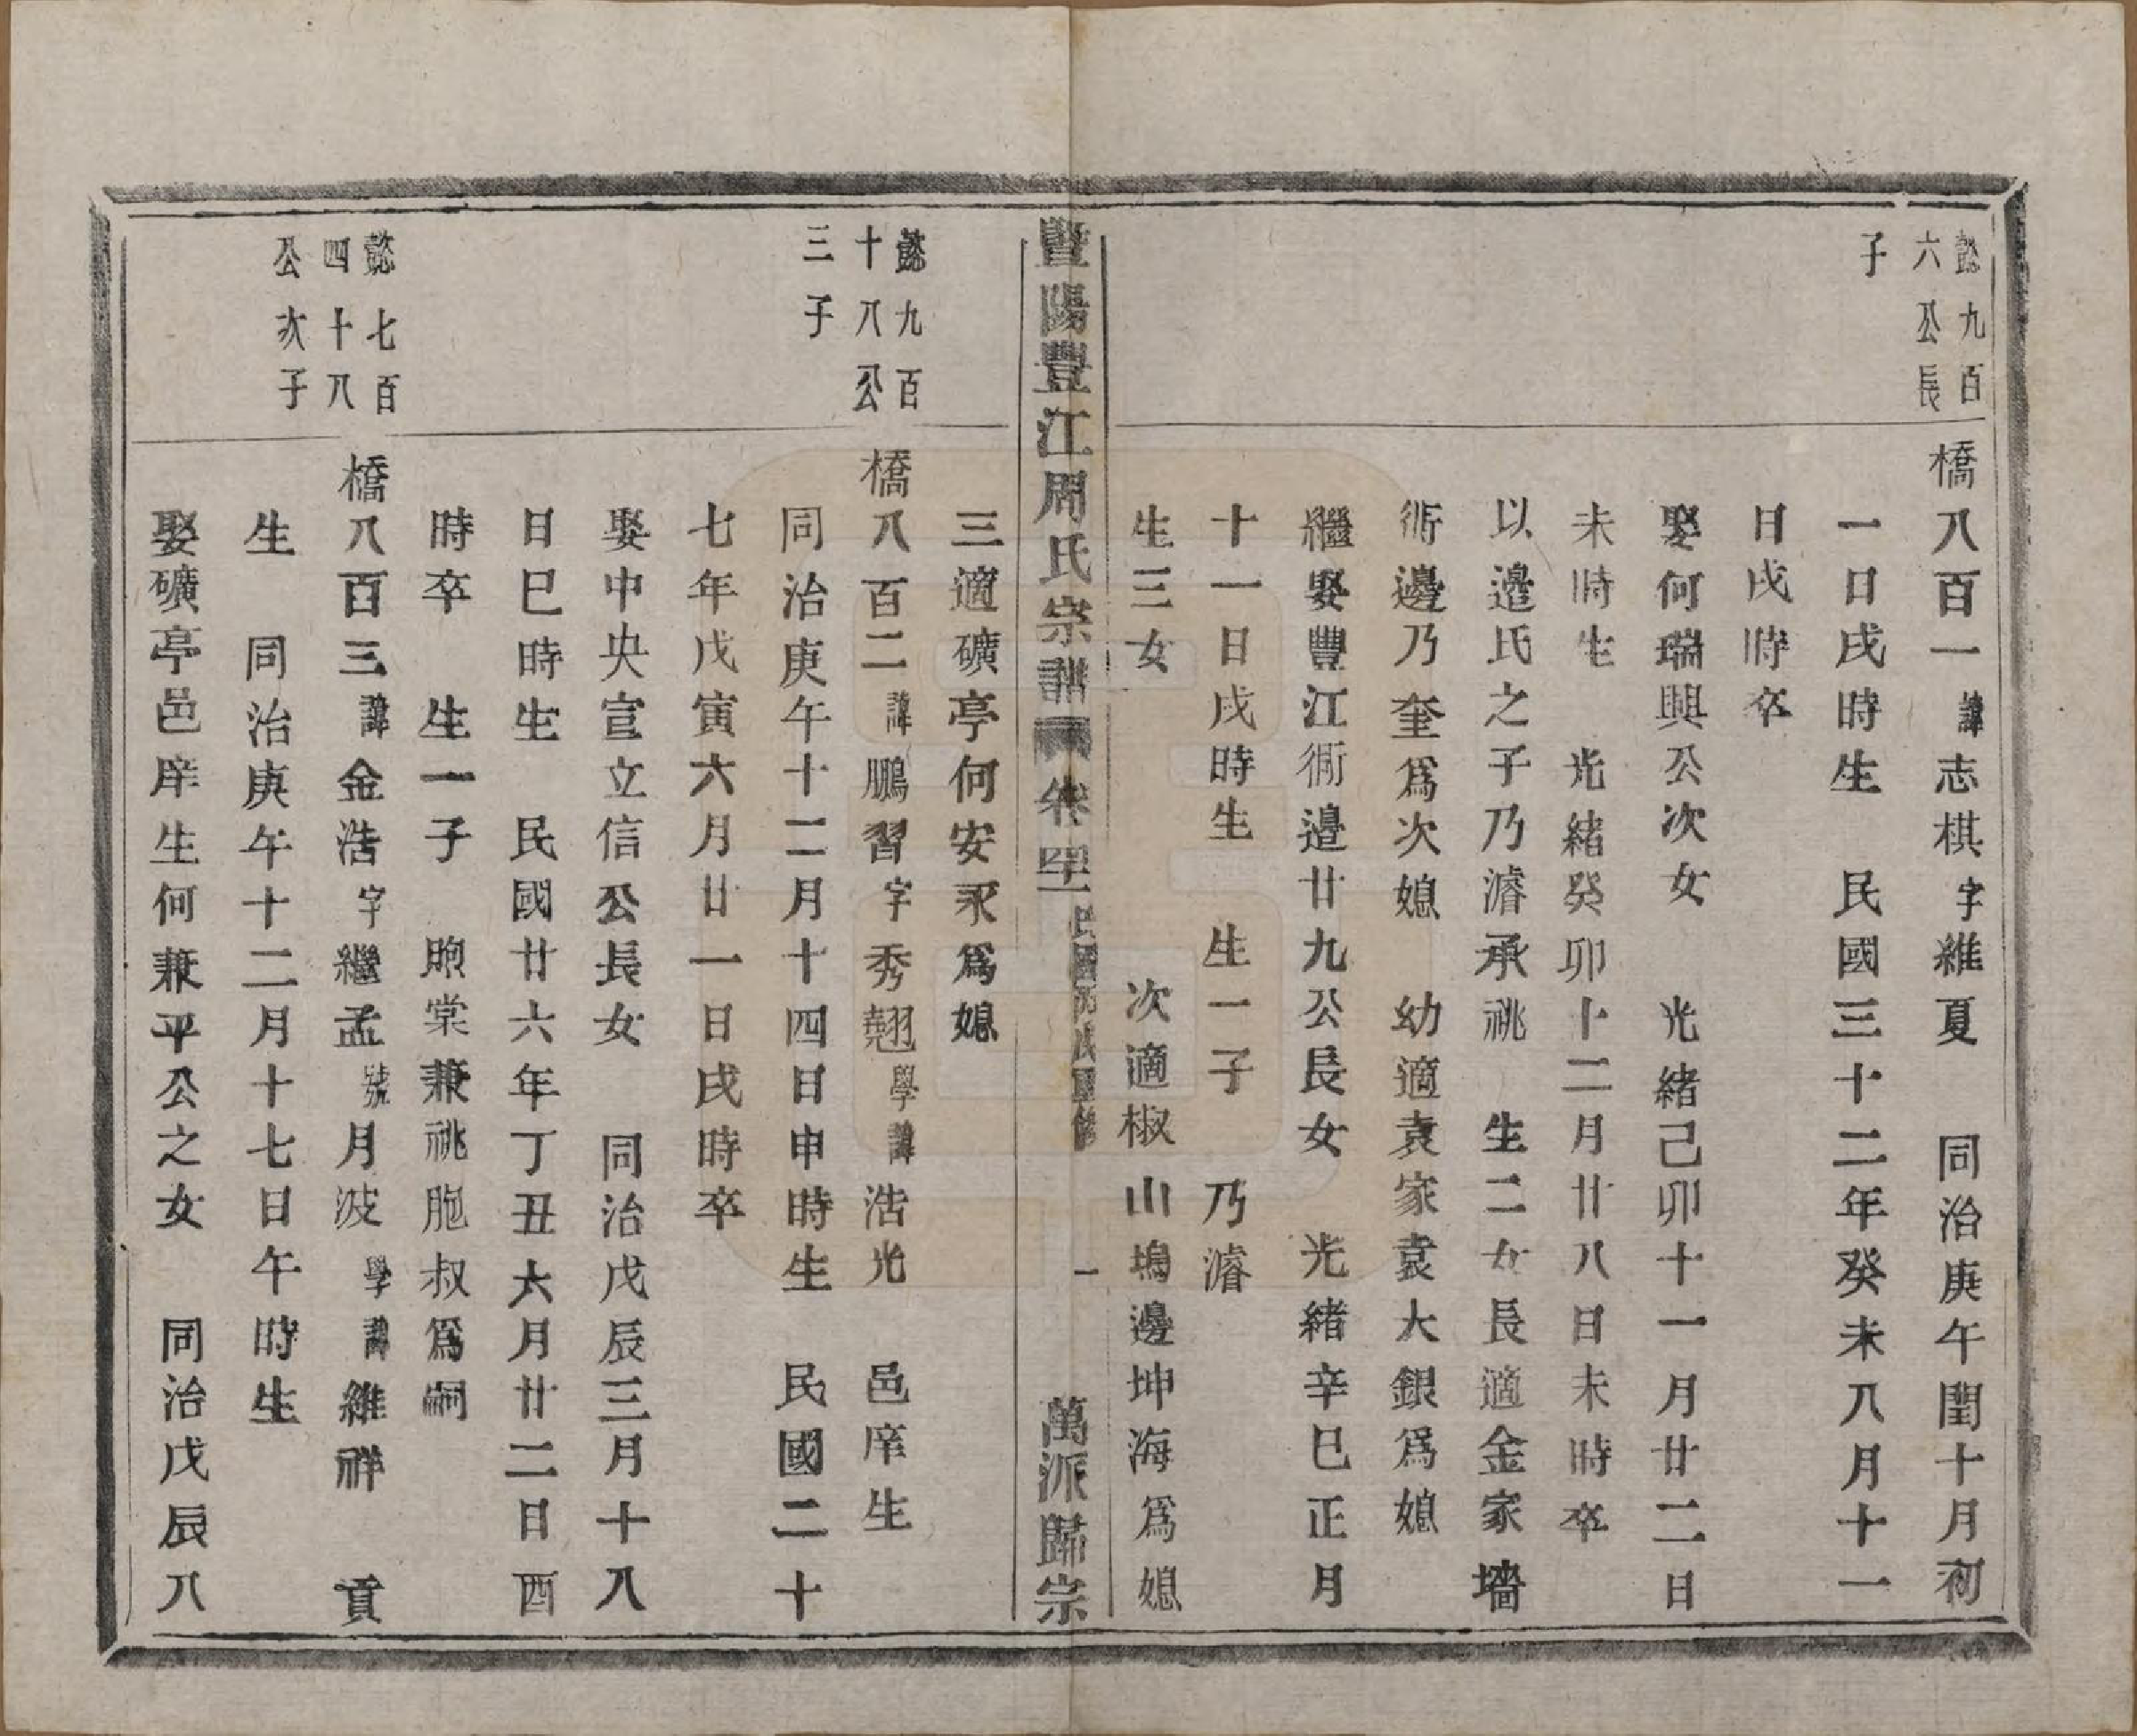 懿九百
六公長
子
橋八百一諱志棋字維夏 同治庚午閏十月初
一日戌時生 民國三十二年癸未八月十一
日戌時卒
娶何瑞興公次女 光緒己卯十一月廿二日
未時生 光緒癸卯十二月廿八日未時卒
以邉氏之子乃濬承祧 生二女長適金家墻
衕邊乃奎爲次媳 幼適袁家袁大銀爲媳
繼娶豐江衕邉廿九公長女 光緒辛巳正月
十一日戌時生 生一子 乃濬
生三女 次適椒山塢邊坤海爲媳
暨陽豐江周氏宗譜 卷 一 萬派歸宗
三適礦亭何安永爲媳
懿九百
十八公
三子
橋八百二諱鵬習字秀翹學諱浩光 邑庠生
同治庚午十二月十四日申時生 民國二十
七年戊寅六月廿一日戌時卒
娶中央宣立信公長女 同治戊辰三月十八
日巳時生 民國廿六年丁丑六月廿二日酉
時卒 生一子 煦棠兼祧胞叔爲嗣
懿七百
四十八
公次子
橋八百三諱金浩字繼孟號月波學諱維祥 貢
生 同治庚午十二月十七日午時生
娶礦亭邑庠生何兼平公之女 同治戊辰八